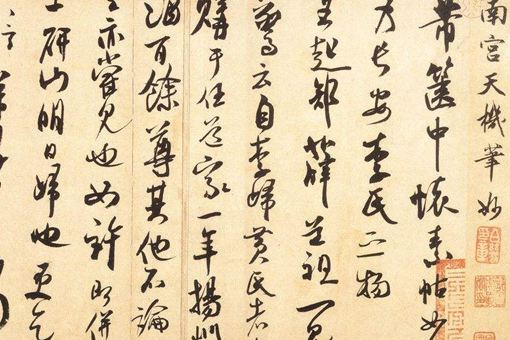 南宮天機筆妙
芾篋中懷素帖如
乃長安李氏之物
王起部薛道祖一見
驚云自李歸黃氏者
購于任道家一年揚州
酒百餘尊其他不論
公亦嘗見也如許即併
上研山明日歸也更乞
言